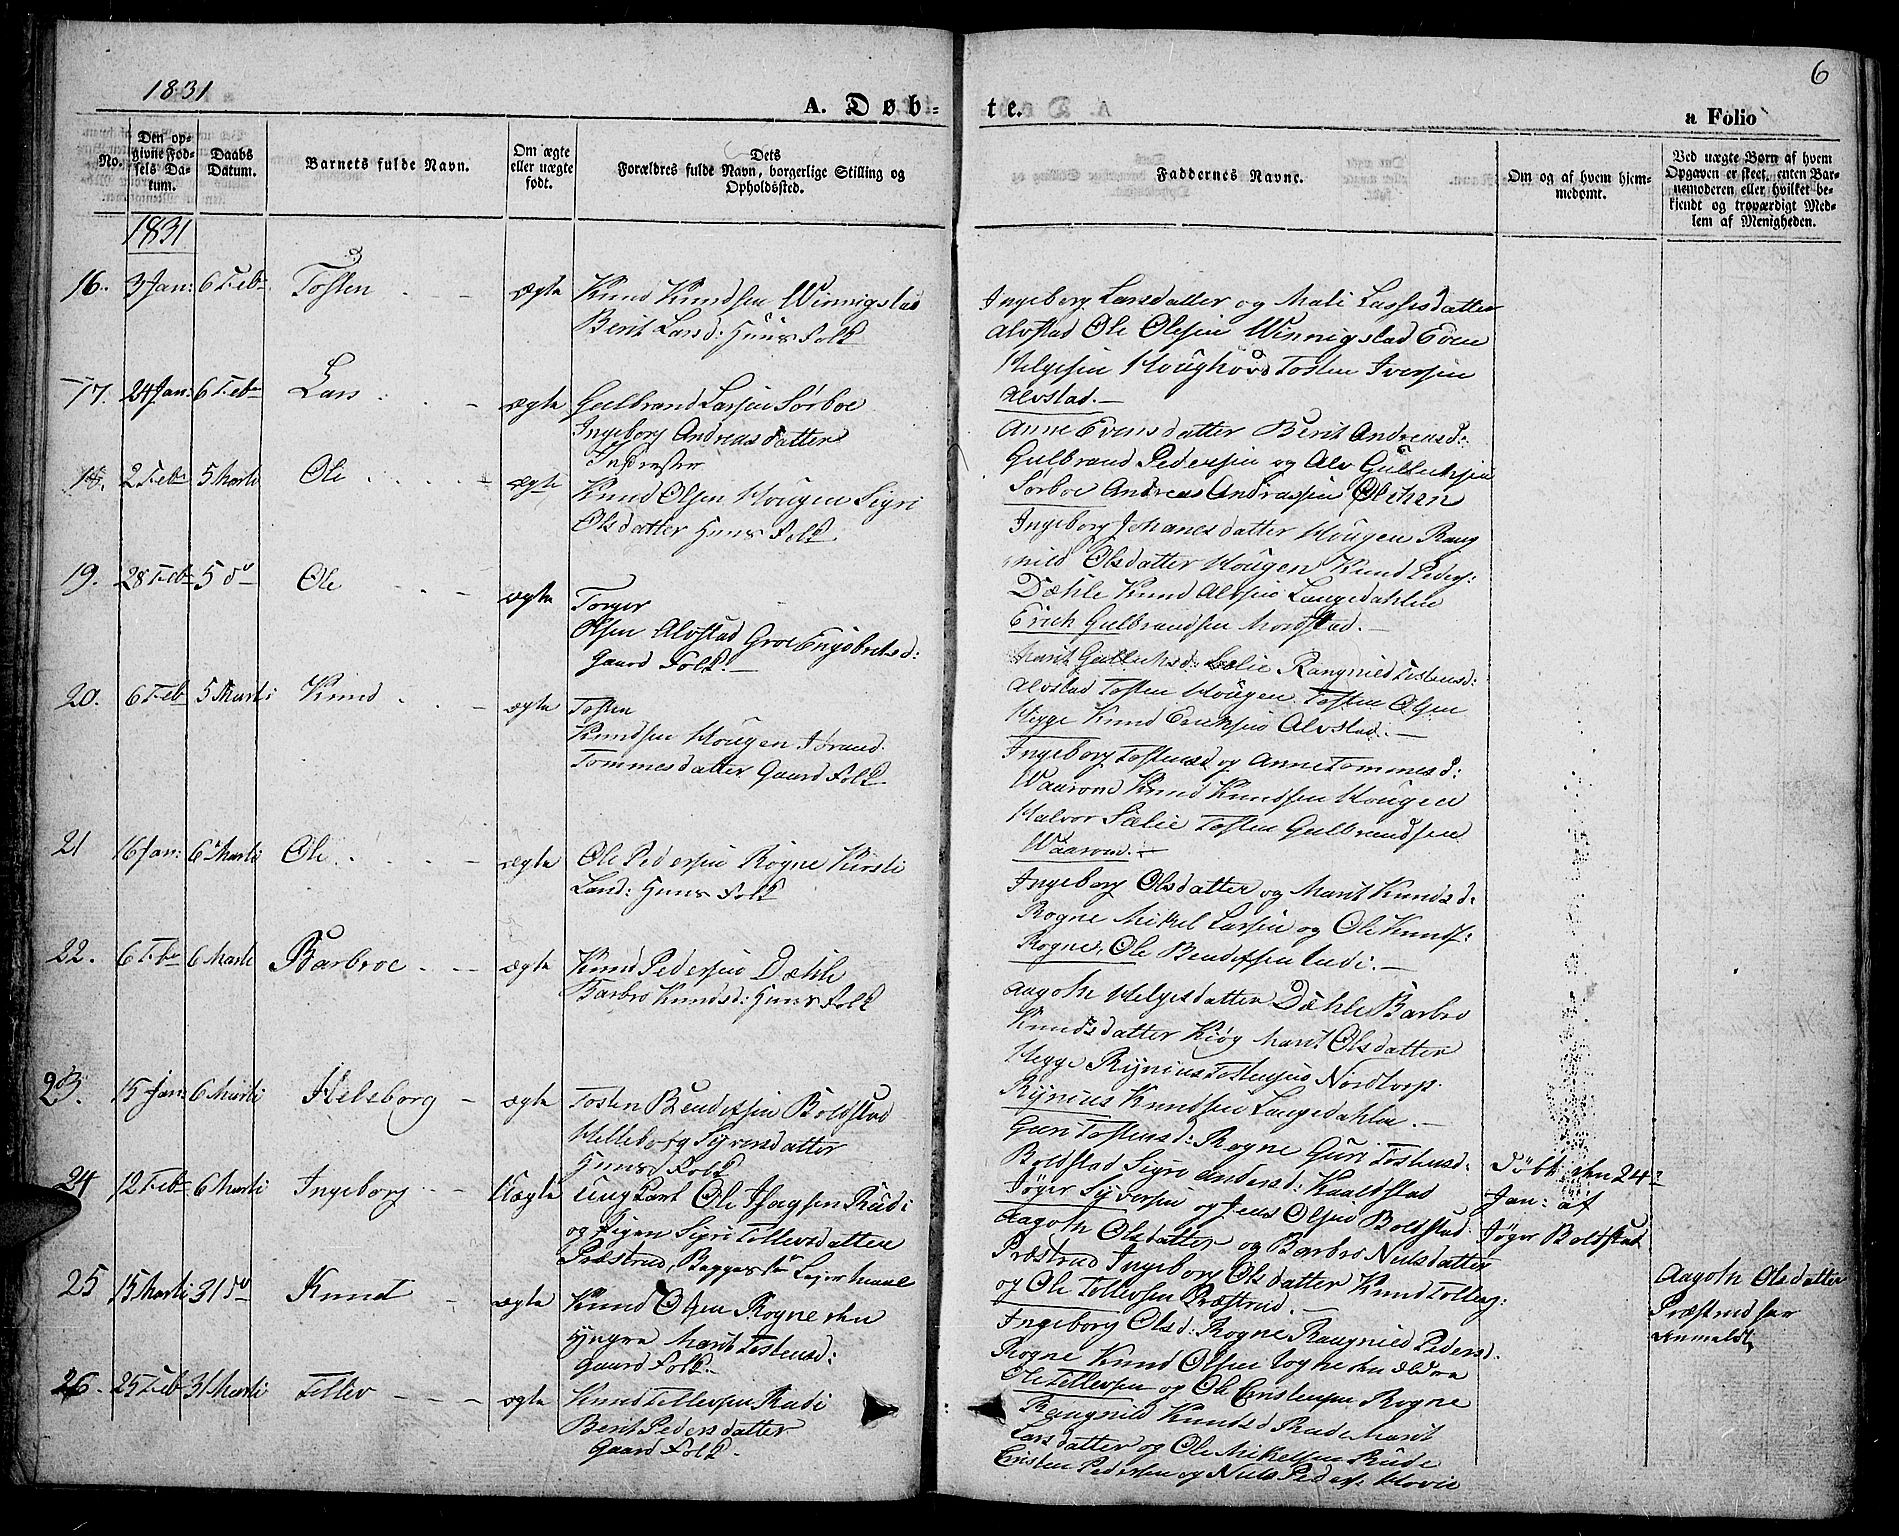 1831
6
A. Døb-
te.
a Folio
No.
Den op-
givne Fød-
sels Da-
tum.
Daabs
Datum.
Barnets fulde Navn.
Om ægte
eller uægte
født.
Dets
Forældres fulde Navn, borgerlige Stilling og
Opholdssted.
Faddernes Navne.
Om og af hvem hjem-
medømt.
Ved uægte Børn af hvem
Opgaven er skeet, enten Bar-
nemoderen eller hvilket be-
kjendt og troværdigt Med-
lem af Menigheden.
1831
16. 3 Jan: 6 Feb Tosten ægte Knud Knudsen Winnigstad
Berit Larsd: Huus Folk
Ingeborg Larsdatter og Mali Lassesdatter
Alvstad Ole Olsen Winnigstad Even
Helgesen Houghövd Tosten Iversen
Alvstad.
17. 24 Jan: 6 Feb Lars ægte Gulbrand Larsen Sørboe
Ingeborg Andreasdatter
Inderster
Anne Evensdatter Berit Andreasd:
Gulbrand Pedersen og Alv Gulliksen
Sørboe Andreas Andreasen
18. 2 Feb 5 Marti Ole ægte Knud Olsen Hougen Sigri
Olsdatter Huus Folk
Ingeborg Johanesdatter Hougen Rang
nild Olsdatter Hougen Knud Peders:
Dæhle Knud Alvsen Langedahlen
Erich Gulbrandsen Mordstad.
19. 28 Feb 5 do Ole ægte Torger
Olsen Alvstad Groe Engebretsd:
Gaard Folk.
Marit Gulliksd: Sælie Rangnild Tostensd:
Alvstad Tosten Hougen Tosten Olsen
Hegge Knud Eriksen Alvstad.
20. 6 Feb 5 Marti Knud ægte Tosten
Knudsen Hougen Jörand
Tommesdatter Gaard Folk
Ingeborg Tostensd og Anne Tommesd:
Waarond Knud Knudsen Hougen
Halvor Sælie Tosten Gulbrandsen
Waarond.
21 16 Jan: 6 Marti Ole ægte Ole Pedersen Rogne Kirsti
Larsd: Huus Folk
Ingeborg Olsdatter og Marit Knudsd:
Rogne Mikel Larsen og Ole Knuds:
Rogne, Ole Bendixsen
22. 6 Feb 6 Marti Barbroe ægte Knud Pedersen Dæhle
Barbro Knudsd: Huus Folk
Aagoth Helgesdatter Dæhle Barbro
Knudsdatter Kiøg Marit Olsdatter
Hegge Rijnius Tostensen Nordtorp
Rijnius Knudsen Langedahlen.
23. 15 Jan: 6 Marti Heleborg ægte Tosten Bendixsen Boldstad
Helleborg Siversdatter
Huus Folk
Guri Tostensd: Rogne Guri Tostensd:
Boldstad Sigri Andersd: Kaaldstad
Jöger Syversen og Jens Olsen Boldstad
Döbt den 24de
Jan: af
Jöger Boldstad
24 12 Feb 6 Marti Ingeborg Uægte Ung Karl Ole Rudi
og Pigen Sigri Tollevsdatter
Præstrud, Begges
Aagoth Olsdatter og Barbro Nielsdatter
Præstrud Ingeborg Olsdatter Knud Tollevs:
og Ole Tollevsen Præstrud.
Aagoth Olsdatter
Præstrud har
Anmeldt
25 15 Marti 31 do Knud ægte Knud Olsen Rogne den
yngre Marit Tostensd:
Gaard Folk.
Ingeborg Olsd: Rogne Rangnild Pedersd.
Rogne Knud Olsen Rogne den Eldre
Ole Tollevsen og Ole Cristensen Rogne
26. 25 Feb 31 Marti Tollev ægte Knud Tollevsen Rudi
Berit Pedersdatter
Gaard Folk.
Rangnild Knudsd Rude Marit
Larsdatter og Ole Mikelsen Rude
Cristen Pedersen og Niels Peders: Hovie